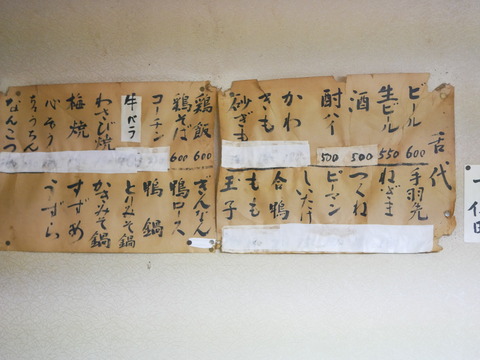 古代
ビール 600
生ビール 550
酒 500
酎ハイ 500
かわ
きも
砂ぎも
手羽先
ねぎま
つくね
ピーマン
しいたけ
合鴨
もも
玉子
鶏飯 600
鶏そば 600
コーチン
牛バラ
わさび焼
梅焼
心そう
ちょうちん
なんこつ
ぎんなん
鴨ロース
鴨鍋
とりみそ鍋
かきみそ鍋
すずめ
うずら